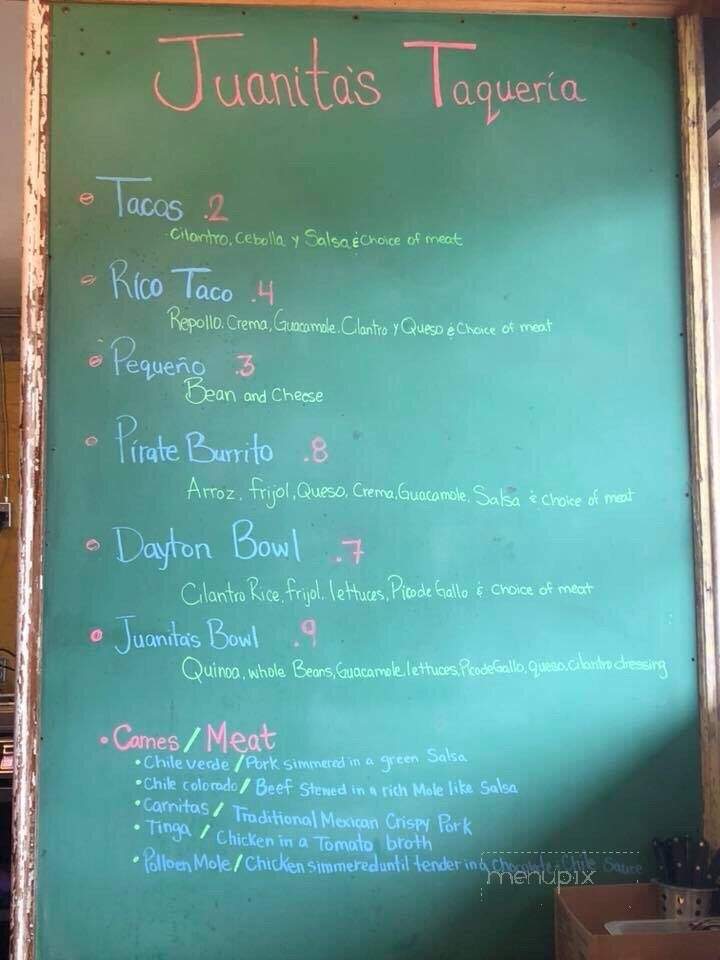 Juanita's Taquería
Tacos .2
Cilantro, Cebolla y Salsa & Choice of meat
Rico Taco .4
Repollo, Crema, Guacamole, Cilantro y Queso & Choice of meat
Pequeño .3
Bean and Cheese
Pirate Burrito .8
Arroz, frijol, Queso, Crema, Guacamole, Salsa & choice of meat
Dayton Bowl .7
Cilantro Rice, frijol, lettuces, Pico de Gallo & choice of meat
Juanita's Bowl .9
Quinoa, whole Beans, Guacamole, lettuces, Pico de Gallo, queso, cilantro dressing
• Carnes / Meat
• Chile verde / Pork simmered in a green Salsa
• Chile colorado / Beef Stewed in a rich Mole like Salsa
• Carnitas / Traditional Mexican Crispy Pork
• Tinga / Chicken in a Tomato broth
• Pollo en Mole / Chicken simmered until tender in a Chocolate-Chile Sauce
menupix